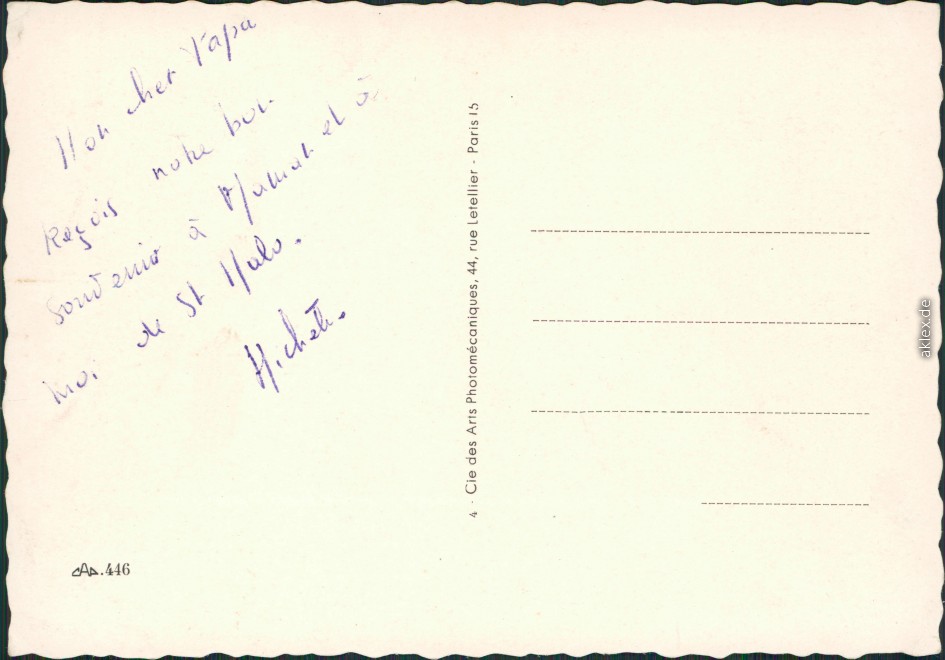 Mon cher Papa
Reçois notre bon
souvenir à Maman et à
moi de St Malo.
Michèle.
4 - Cie des Arts Photomécaniques, 44, rue Letellier - Paris 15
CAP.446
aklex.de